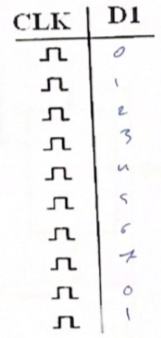 CLK D1
0
1
2
3
4
5
6
7
0
1